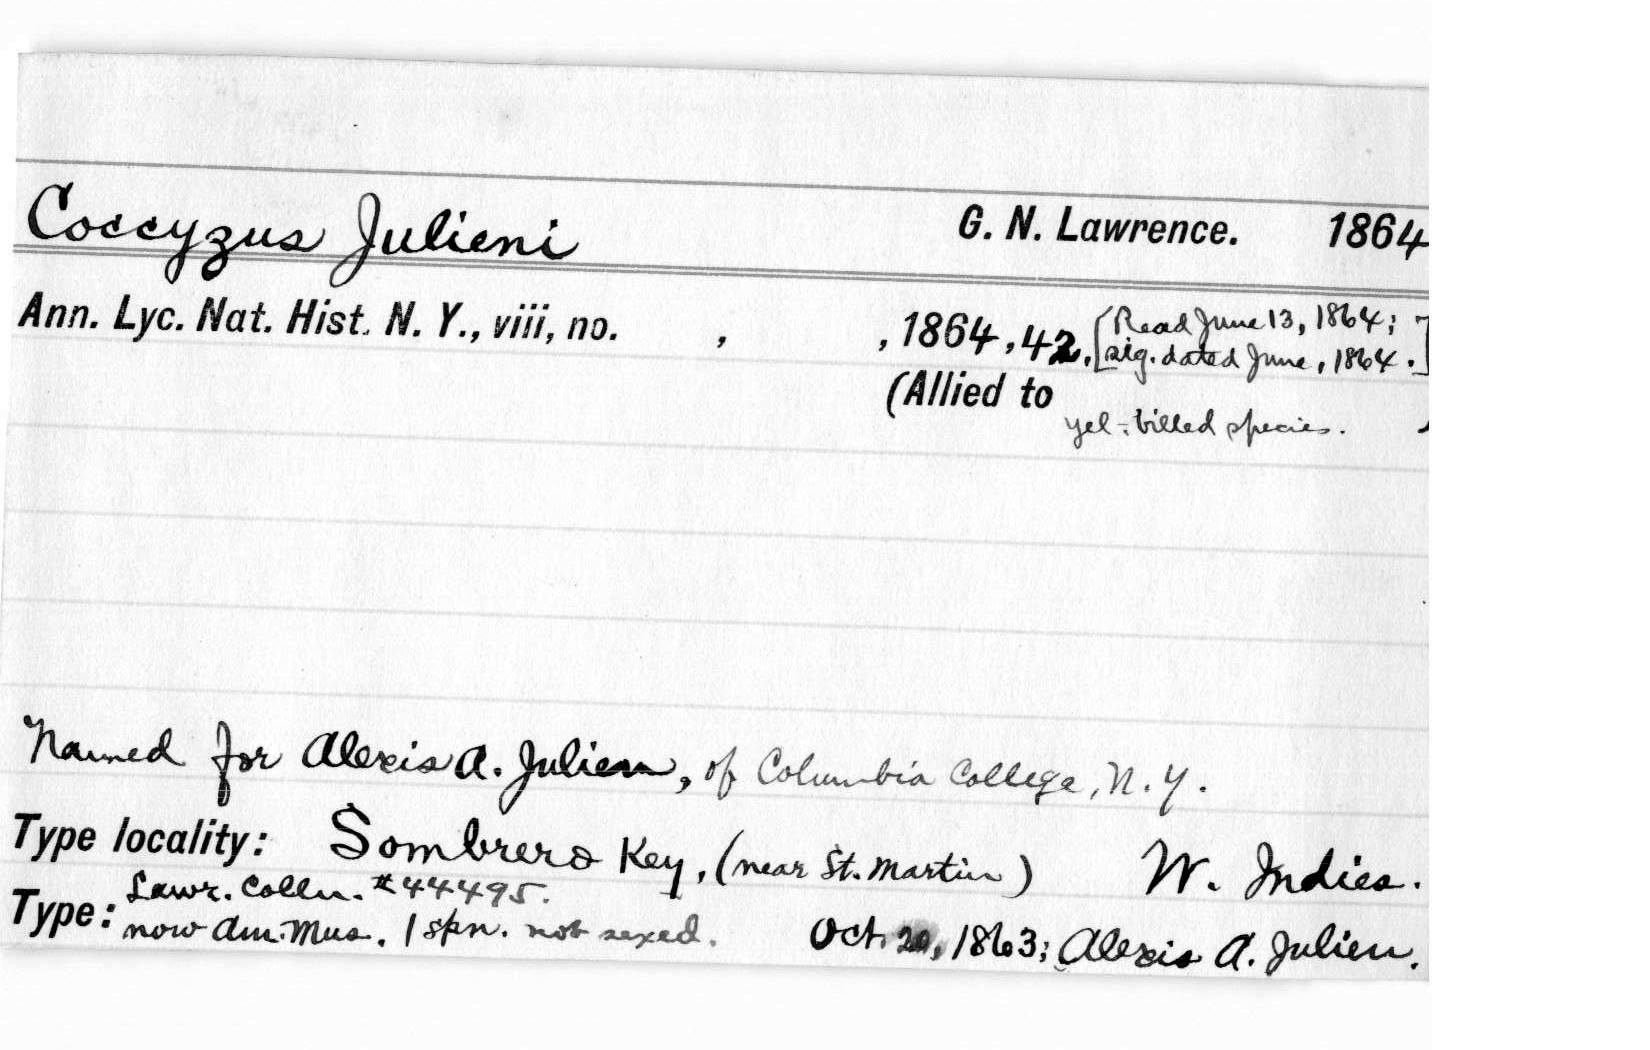 Coccyzus Julieni G. N. Lawrence. 1864
Ann. Lyc. Nat. Hist. N. Y., viii, no. , , 1864, 42, [Read June 13, 1864;
sig. dated June, 1864.]
(Allied to
yel-billed species. )
Named for Alexis A. Julien, of Columbia College, N. Y.
Type locality: Sombrero Key, (near St. Martin) W. Indies.
Lawr. Colln. #44495.
Type: now Am. Mus. 1 spn. not sexed. Oct. 20, 1863; Alexis A. Julien.